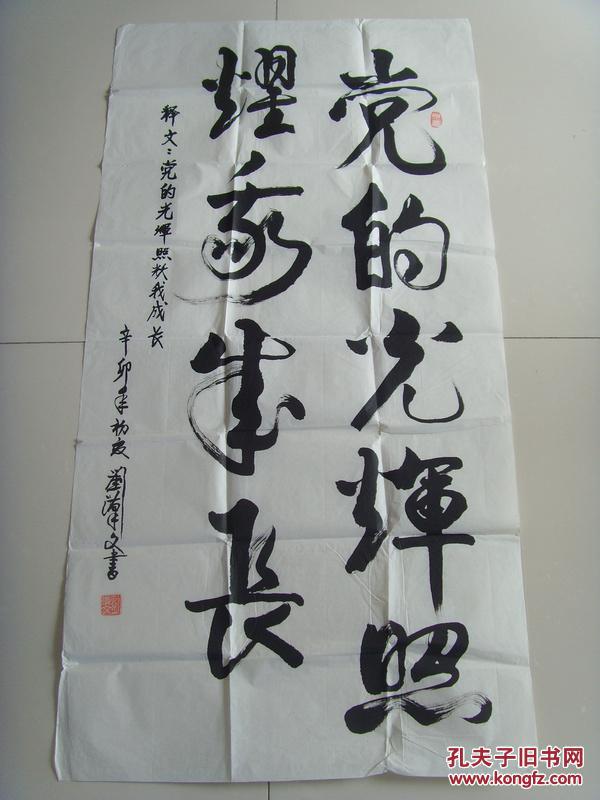 党的光辉照
耀我成长
释文：党的光辉照耀我成长
辛卯年初夏 刘汉文书
孔夫子旧书网
www.kongfz.com